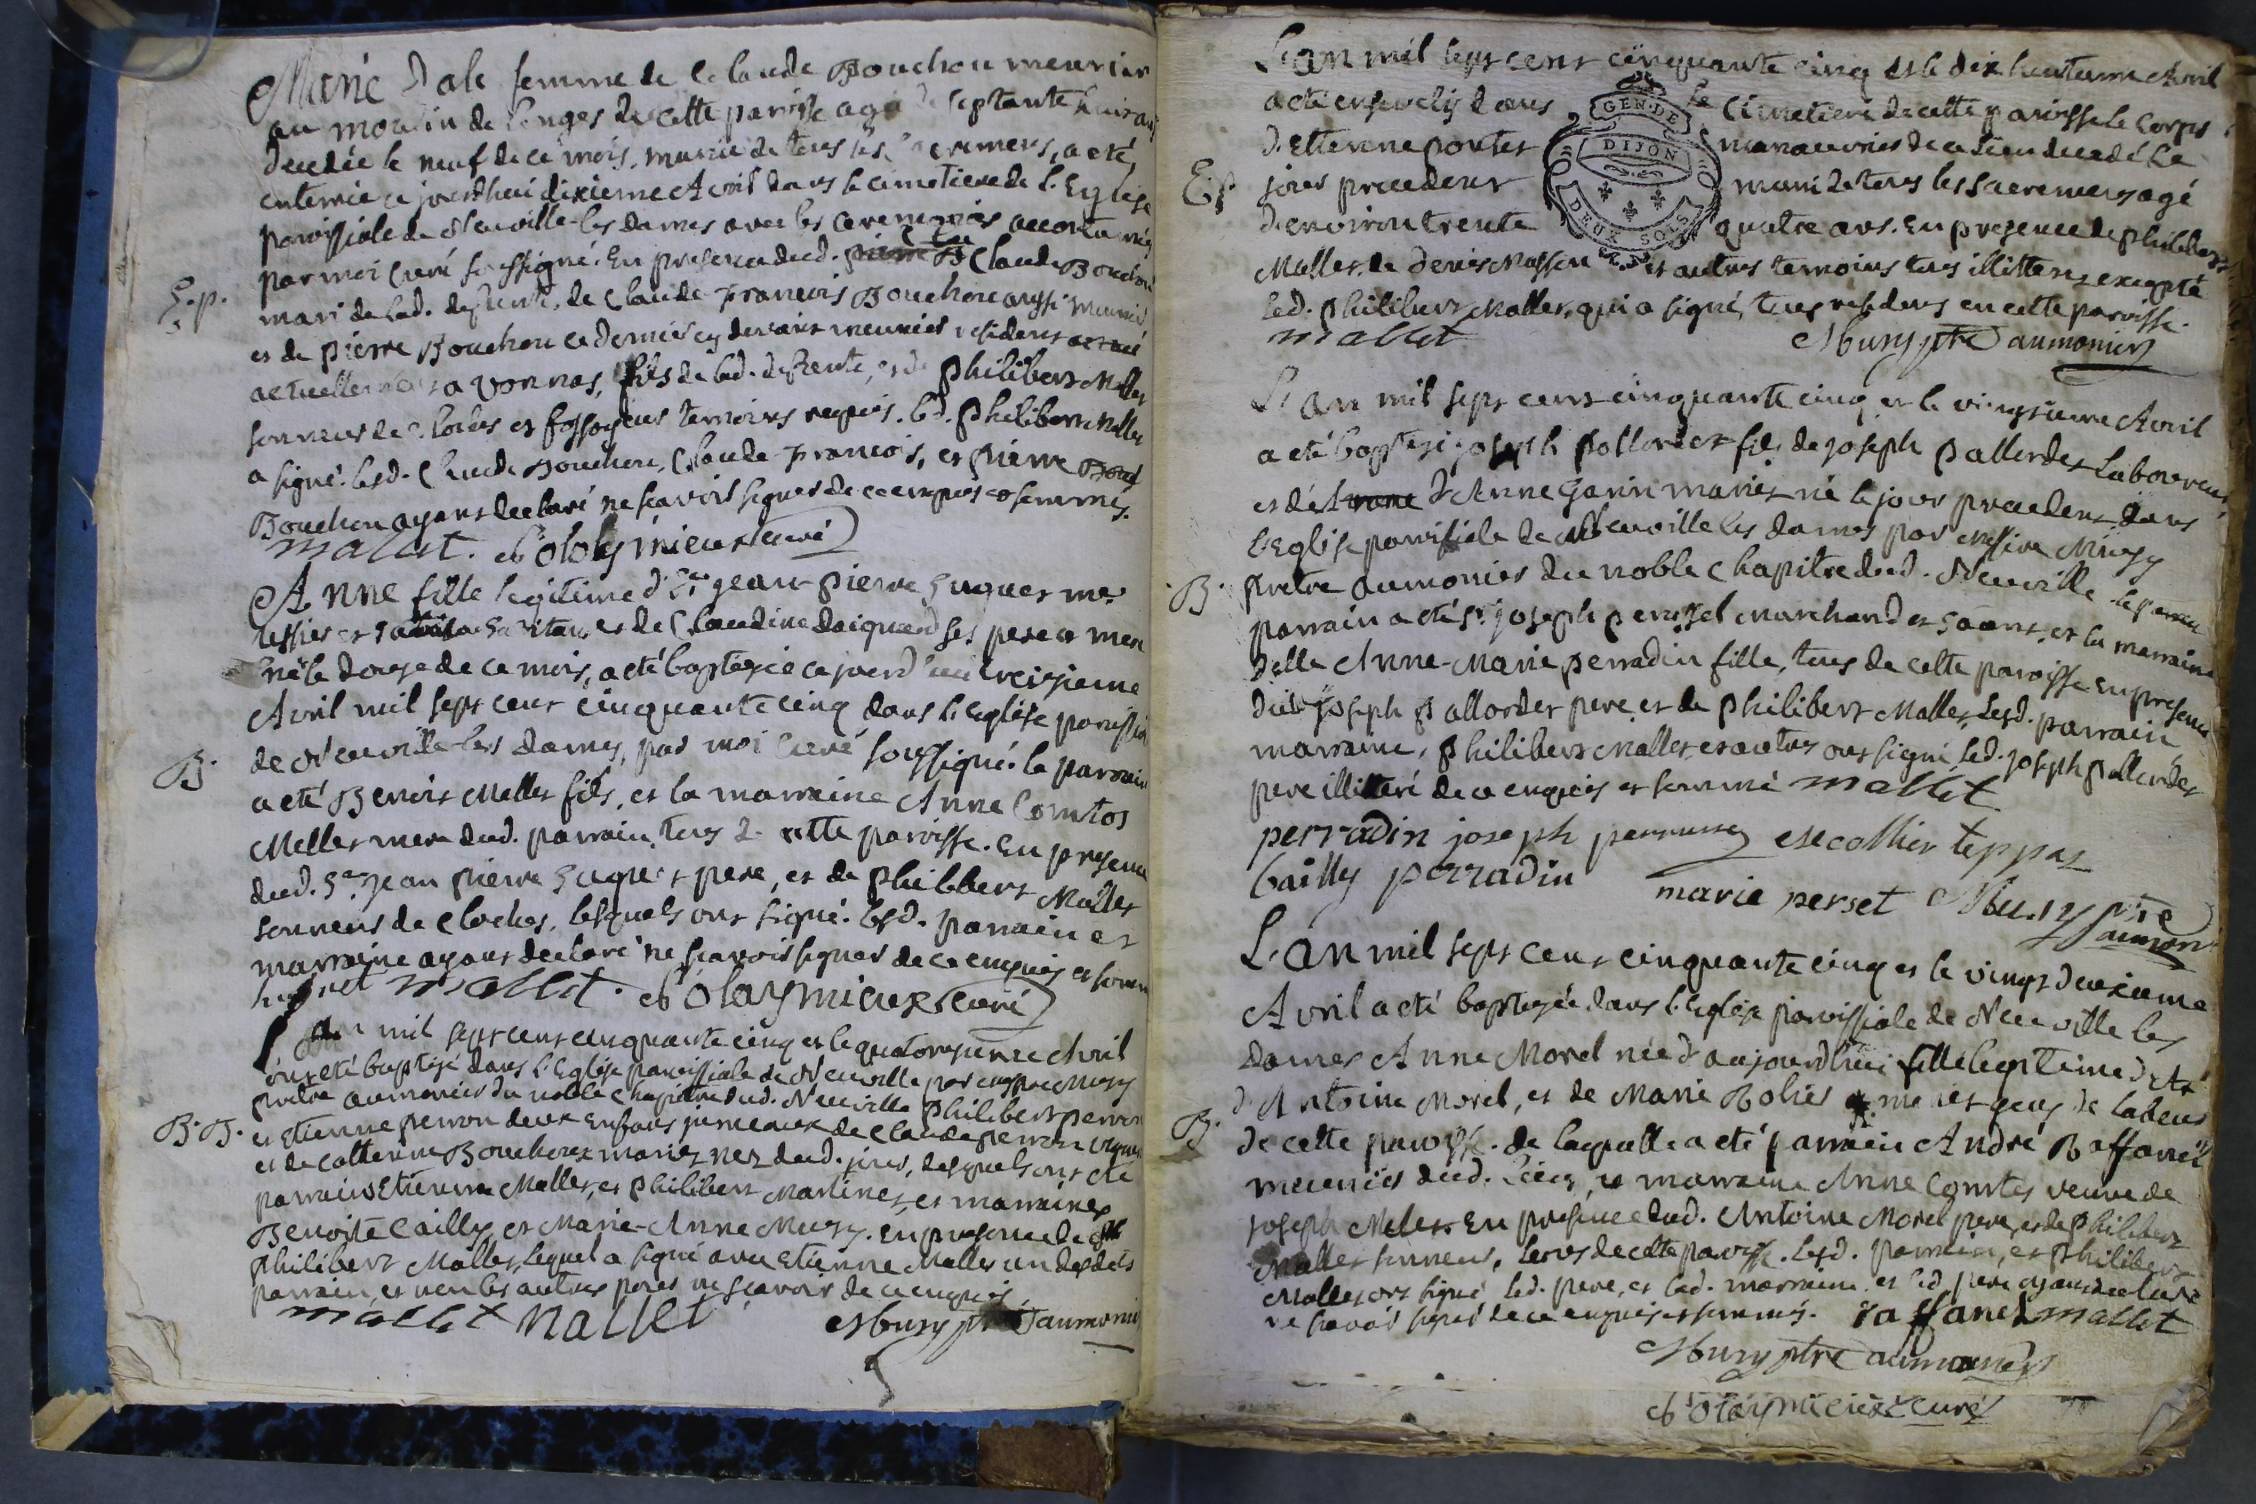 Marie Dale femme de Claude Bouchou meunier
au moulin de Longes de cette paroisse agée de septante huit ans
decedée le neuf de ce mois, munie de tous les sacremens, a eté
enterrée ce jourdhui dixieme Avril dans le cimetiere de l'Eglise
paroissiale de Neuville-les dames avec les ceremonies accoutumées
par moi Curé soussigné. En presence dud. Claude Bouchou
E.p.
mari de lad. defunte, de Claude-Francois Bouchou aussi meunier
et de pierre Bouchou ce dernier cy devant meunier residens
actuellement a vonnas, fils de lad. defunte, et de philibert Mallet
sonneur de cloches et fossoyeur temoins requis. led. philibert Mallet
a signé. lesd. Claude Bouchou, Claude-Francois, et pierre
Bouchou ayant declaré ne scavoir signer de ce enquis et sommés.
mallet. curé
Anne fille legitime d' Sr jean-pierre huguet me
et de Claudine daiguend ses pere et mere
née le douze de ce mois, a eté baptizée ce jourd'hui treizieme
Avril mil sept cent cinquante cinq dans l'Eglise paroissiale
de Neuville-les dames, par moi curé soussigné. le parrain
B.
a eté Benoit Mellet fils, et la marraine Anne Comtos
Mellet mere dud. parrain, tous de cette paroisse. En presence
dud. Sr jean pierre huguet pere, et de philibert Mallet
sonneur de cloches, lesquels ont signé. lesd. parrain et
marraine ayant declaré ne scavoir signer de ce enquis et sommés
huguet mallet. curé
L'an mil sept cent cinquante cinq et le quatorzieme Avril
ont eté baptizé dans l'Eglise paroissiale de Neuville par messire Mury
pretre aumonier du noble chapitre dud. Neuville philibert perron
B.B.
et Etienne perron deux enfans jumeaux de Claude perron
et de catterine Bouchoux mariez nez dud. jour, desquels ont eté
parrains Etienne Mallet, et philibert Martinet, et marraines
Benoite Cailly, et Marie-Anne Mury. en presence de
philibert Mallet, lequel a signé avec Etienne Mallet un desdits
parrain, et non les autres pour ne scavoir de ce enquis
mallet Mallet Mury ptre aumonier
L'an mil sept cent cinquante cinq et le dix huitieme Avril
a eté ensevely dans le Cimetiere de cette paroisse le corps
GEN. DE DIJON DEUX SOLS
d'Ettienne poutet manoeuvrier de ce lieu decedé le
E.p.
jour precedent muni de tous les sacremens agé
d'environ trente quatre ans. En presence de philibert
Mallet, de denis Masson et autres temoins tous illitterez excepté
led. philibert Mallet, qui a signé, tous residens en cette paroisse.
mallet Mury ptre aumonier
L'an mil sept cent cinquante cinq et le vingtieme Avril
a eté baptizé joseph pallordet fils de joseph pallordet laboureur
et de d'Anne Garin mariez né le jour precedent, dans
l'Eglise paroissiale de Neuville les dames par messire Mury
B.
pretre aumonier du noble chapitre dud. Neuville le parrain
parrain a eté sr joseph perussel marchand et et la marraine
delle Anne-Marie perradin fille, tous de cette paroisse en presence
dud. joseph pallordet pere, et de philibert Mallet, lesd. parrain
marraine, philibert Mallet et autres ont signé led. joseph pallordet
pere illitteré de ce enquis et sommé mallet
perradin joseph teppaz
bailly perradin marie perset Mury ptre
aumon.
L'an mil sept cent cinquante cinq et le vingt deuxieme
Avril a eté baptizée dans l'Eglise paroissiale de Neuville les
dames Anne Morel née d'aujourdhui fille legitime
d'Antoine Morel, et de Marie Rolier mariez gens de labeur
B.
de cette paroisse. de laquelle a eté parrain André Raffanel
meunier dud. lieu, et marraine Anne Comtes veuve de
joseph Mellet. En presence dud. Antoine Morel pere, et de philibert
Mallet sonneur, tous de cette paroisse. lesd. parrain, et philibert
Mallet ont signé led. pere, et lad. marraine et led pere ayant declaré
ne scavoir signer de ce enquis et sommés. raffanel mallet
Mury ptre aumonier
curé